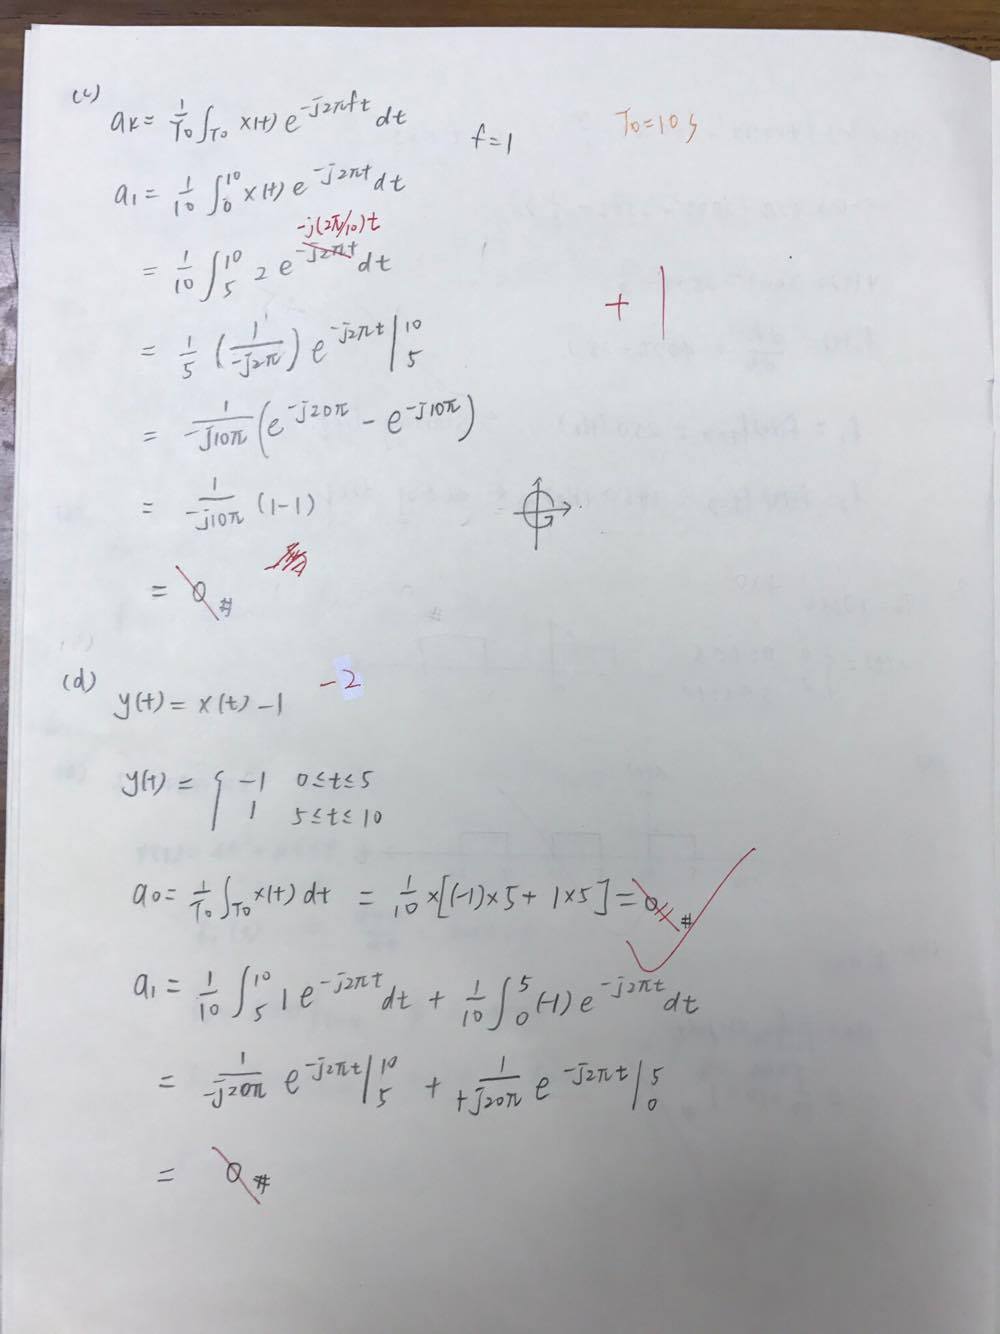 (c)
aₖ = 1/T₀ ∫_T₀ x(t) e^(-j2πft) dt
f=1
T₀=10 s
a₁ = 1/10 ∫₀^10 x(t) e^(-j2πt) dt
-j(2π/10)t
= 1/10 ∫₅^10 2 e^(-j2πt) dt
+1
= 1/5 (1/(-j2π)) e^(-j2πt) |₅^10
= 1/(-j10π) (e^(-j20π) - e^(-j10π))
= 1/(-j10π) (1-1)
= 0 #
(d)
-2
y(t) = x(t) -1
y(t) = { -1 0≤t≤5
1 5≤t≤10
a₀ = 1/T₀ ∫_T₀ x(t) dt = 1/10 ×[(-1)×5 + 1×5] = 0 #
a₁ = 1/10 ∫₅^10 1 e^(-j2πt) dt + 1/10 ∫₀^5 (-1) e^(-j2πt) dt
= 1/(-j20π) e^(-j2πt) |₅^10 + 1/(+j20π) e^(-j2πt) |₀^5
= 0 #